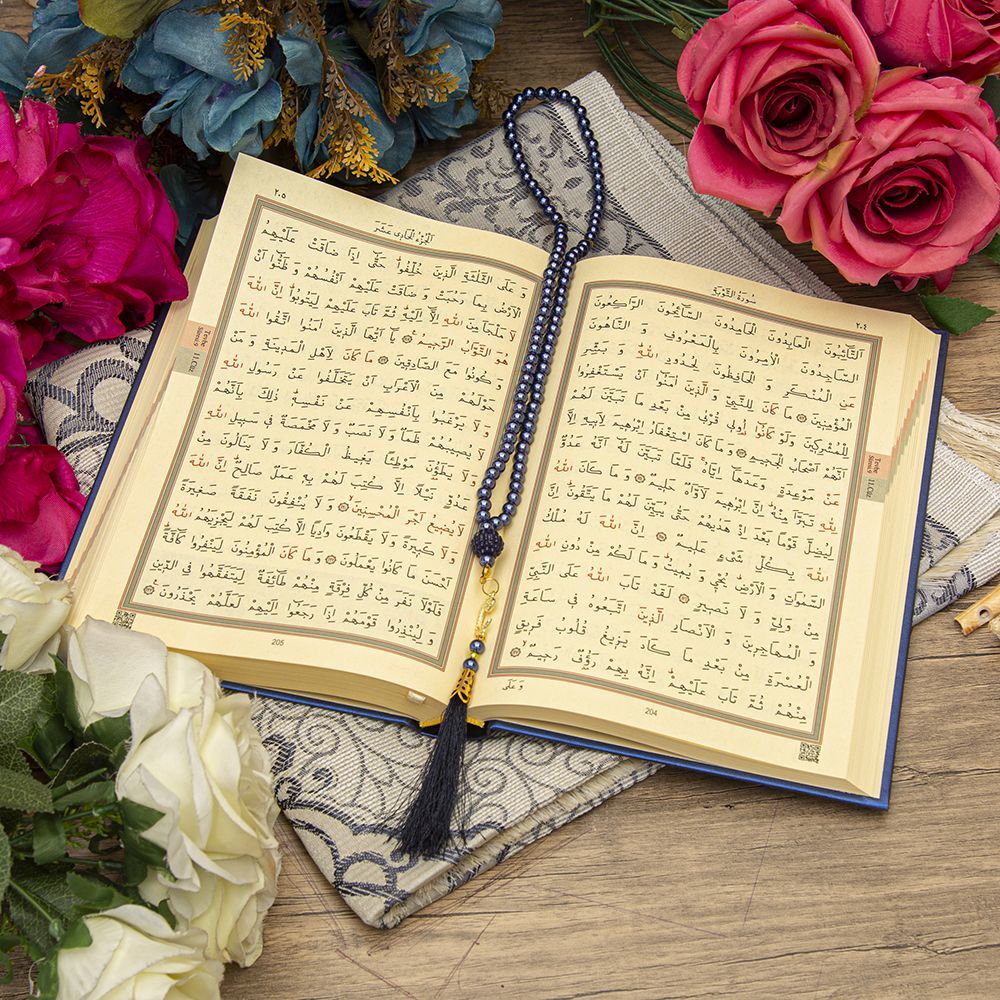 ٢٠٤
سُورَةُ التَّوْبَةِ
اَلتَّٓائِبُونَ الْعَابِدُونَ الْحَامِدُونَ السَّٓائِحُونَ الرَّاكِعُونَ
السَّاجِدُونَ الْاٰمِرُونَ بِالْمَعْرُوفِ وَ النَّاهُونَ
عَنِ الْمُنْكَرِ وَ الْحَافِظُونَ لِحُدُودِ اللّٰهِ وَ بَشِّرِ
الْمُؤْمِنِينَ مَا كَانَ لِلنَّبِيِّ وَ الَّذِينَ اٰمَنُٓوا اَنْ يَسْتَغْفِرُوا
لِلْمُشْرِكِينَ وَلَوْ كَانُٓوا اُولِي قُرْبٰى مِنْ بَعْدِ مَا تَبَيَّنَ لَهُمْ
اَنَّهُمْ اَصْحَابُ الْجَحِيمِ وَ مَا كَانَ اسْتِغْفَارُ اِبْرٰهِيمَ لِاَبِيهِ اِلَّا
عَنْ مَوْعِدَةٍ وَعَدَهَٓا اِيَّاهُۚ فَلَمَّا تَبَيَّنَ لَهُٓ اَنَّهُ عَدُوٌّ
لِلّٰهِ تَبَرَّاَ مِنْهُۜ اِنَّ اِبْرٰهِيمَ لَاَوَّاهٌ حَلِيمٌ وَ مَا كَانَ اللّٰهُ
لِيُضِلَّ قَوْمًا بَعْدَ اِذْ هَدٰيهُمْ حَتّٰى يُبَيِّنَ لَهُمْ مَا يَتَّقُونَۜ اِنَّ
اللّٰهَ بِكُلِّ شَيْءٍ عَلِيمٌ اِنَّ اللّٰهَ لَهُ مُلْكُ
السَّمٰوَاتِ وَ الْاَرْضِۜ يُحْيِي وَ يُمِيتُۜ وَ مَا لَكُمْ مِنْ دُونِ اللّٰهِ
مِنْ وَلِيٍّ وَ لَا نَصِيرٍ لَقَدْ تَابَ اللّٰهُ عَلَى النَّبِيِّ
وَ الْمُهَاجِرِينَ وَ الْاَنْصَارِ الَّذِينَ اتَّبَعُوهُ فِي سَاعَةِ
الْعُسْرَةِ مِنْ بَعْدِ مَا كَادَ يَزِيغُ قُلُوبُ فَرِيقٍ
مِنْهُمْ ثُمَّ تَابَ عَلَيْهِمْۜ اِنَّهُ بِهِمْ رَؤُفٌ رَحِيمٌ
وَ عَلَى
204
Tevbe
Sûresi 9
11. Cüz
٢٠٥
اَلْجُزْءُ الْحَادِي عَشَرَ
وَ عَلَى الثَّلٰثَةِ الَّذِينَ خُلِّفُواۜ حَتّٰٓى اِذَا ضَاقَتْ عَلَيْهِمُ
الْاَرْضُ بِمَا رَحُبَتْ وَ ضَاقَتْ عَلَيْهِمْ اَنْفُسُهُمْ وَ ظَنُّٓوا اَنْ
لَا مَلْجَاَ مِنَ اللّٰهِ اِلَّٓا اِلَيْهِۜ ثُمَّ تَابَ عَلَيْهِمْ لِيَتُوبُواۜ اِنَّ اللّٰهَ
هُوَ التَّوَّابُ الرَّحِيمُ يَٓا اَيُّهَا الَّذِينَ اٰمَنُوا اتَّقُوا اللّٰهَ
وَ كُونُوا مَعَ الصَّادِقِينَ مَا كَانَ لِاَهْلِ الْمَدِينَةِ وَ مَنْ
حَوْلَهُمْ مِنَ الْاَعْرَابِ اَنْ يَتَخَلَّفُوا عَنْ رَسُولِ اللّٰهِ
وَ لَا يَرْغَبُوا بِاَنْفُسِهِمْ عَنْ نَفْسِهِۜ ذٰلِكَ بِاَنَّهُمْ
لَا يُصِيبُهُمْ ظَمَأٌ وَ لَا نَصَبٌ وَ لَا مَخْمَصَةٌ فِي سَبِيلِ اللّٰهِ
وَ لَا يَطَؤُنَ مَوْطِئًا يَغِيظُ الْكُفَّارَ وَ لَا يَنَالُونَ مِنْ
عَدُوٍّ نَيْلًا اِلَّا كُتِبَ لَهُمْ بِهِ عَمَلٌ صَالِحٌۜ اِنَّ اللّٰهَ
لَا يُضِيعُ اَجْرَ الْمُحْسِنِينَ وَ لَا يُنْفِقُونَ نَفَقَةً صَغِيرَةً
وَ لَا كَبِيرَةً وَ لَا يَقْطَعُونَ وَادِيًا اِلَّا كُتِبَ لَهُمْ لِيَجْزِيَهُمُ اللّٰهُ
اَحْسَنَ مَا كَانُوا يَعْمَلُونَ وَ مَا كَانَ الْمُؤْمِنُونَ لِيَنْفِرُوا كَٓافَّةًۜ
فَلَوْلَا نَفَرَ مِنْ كُلِّ فِرْقَةٍ مِنْهُمْ طَٓائِفَةٌ لِيَتَفَقَّهُوا فِي الدِّينِ
وَ لِيُنْذِرُوا قَوْمَهُمْ اِذَا رَجَعُٓوا اِلَيْهِمْ لَعَلَّهُمْ يَحْذَرُونَ
205
Tevbe
Sûresi 9
11. Cüz